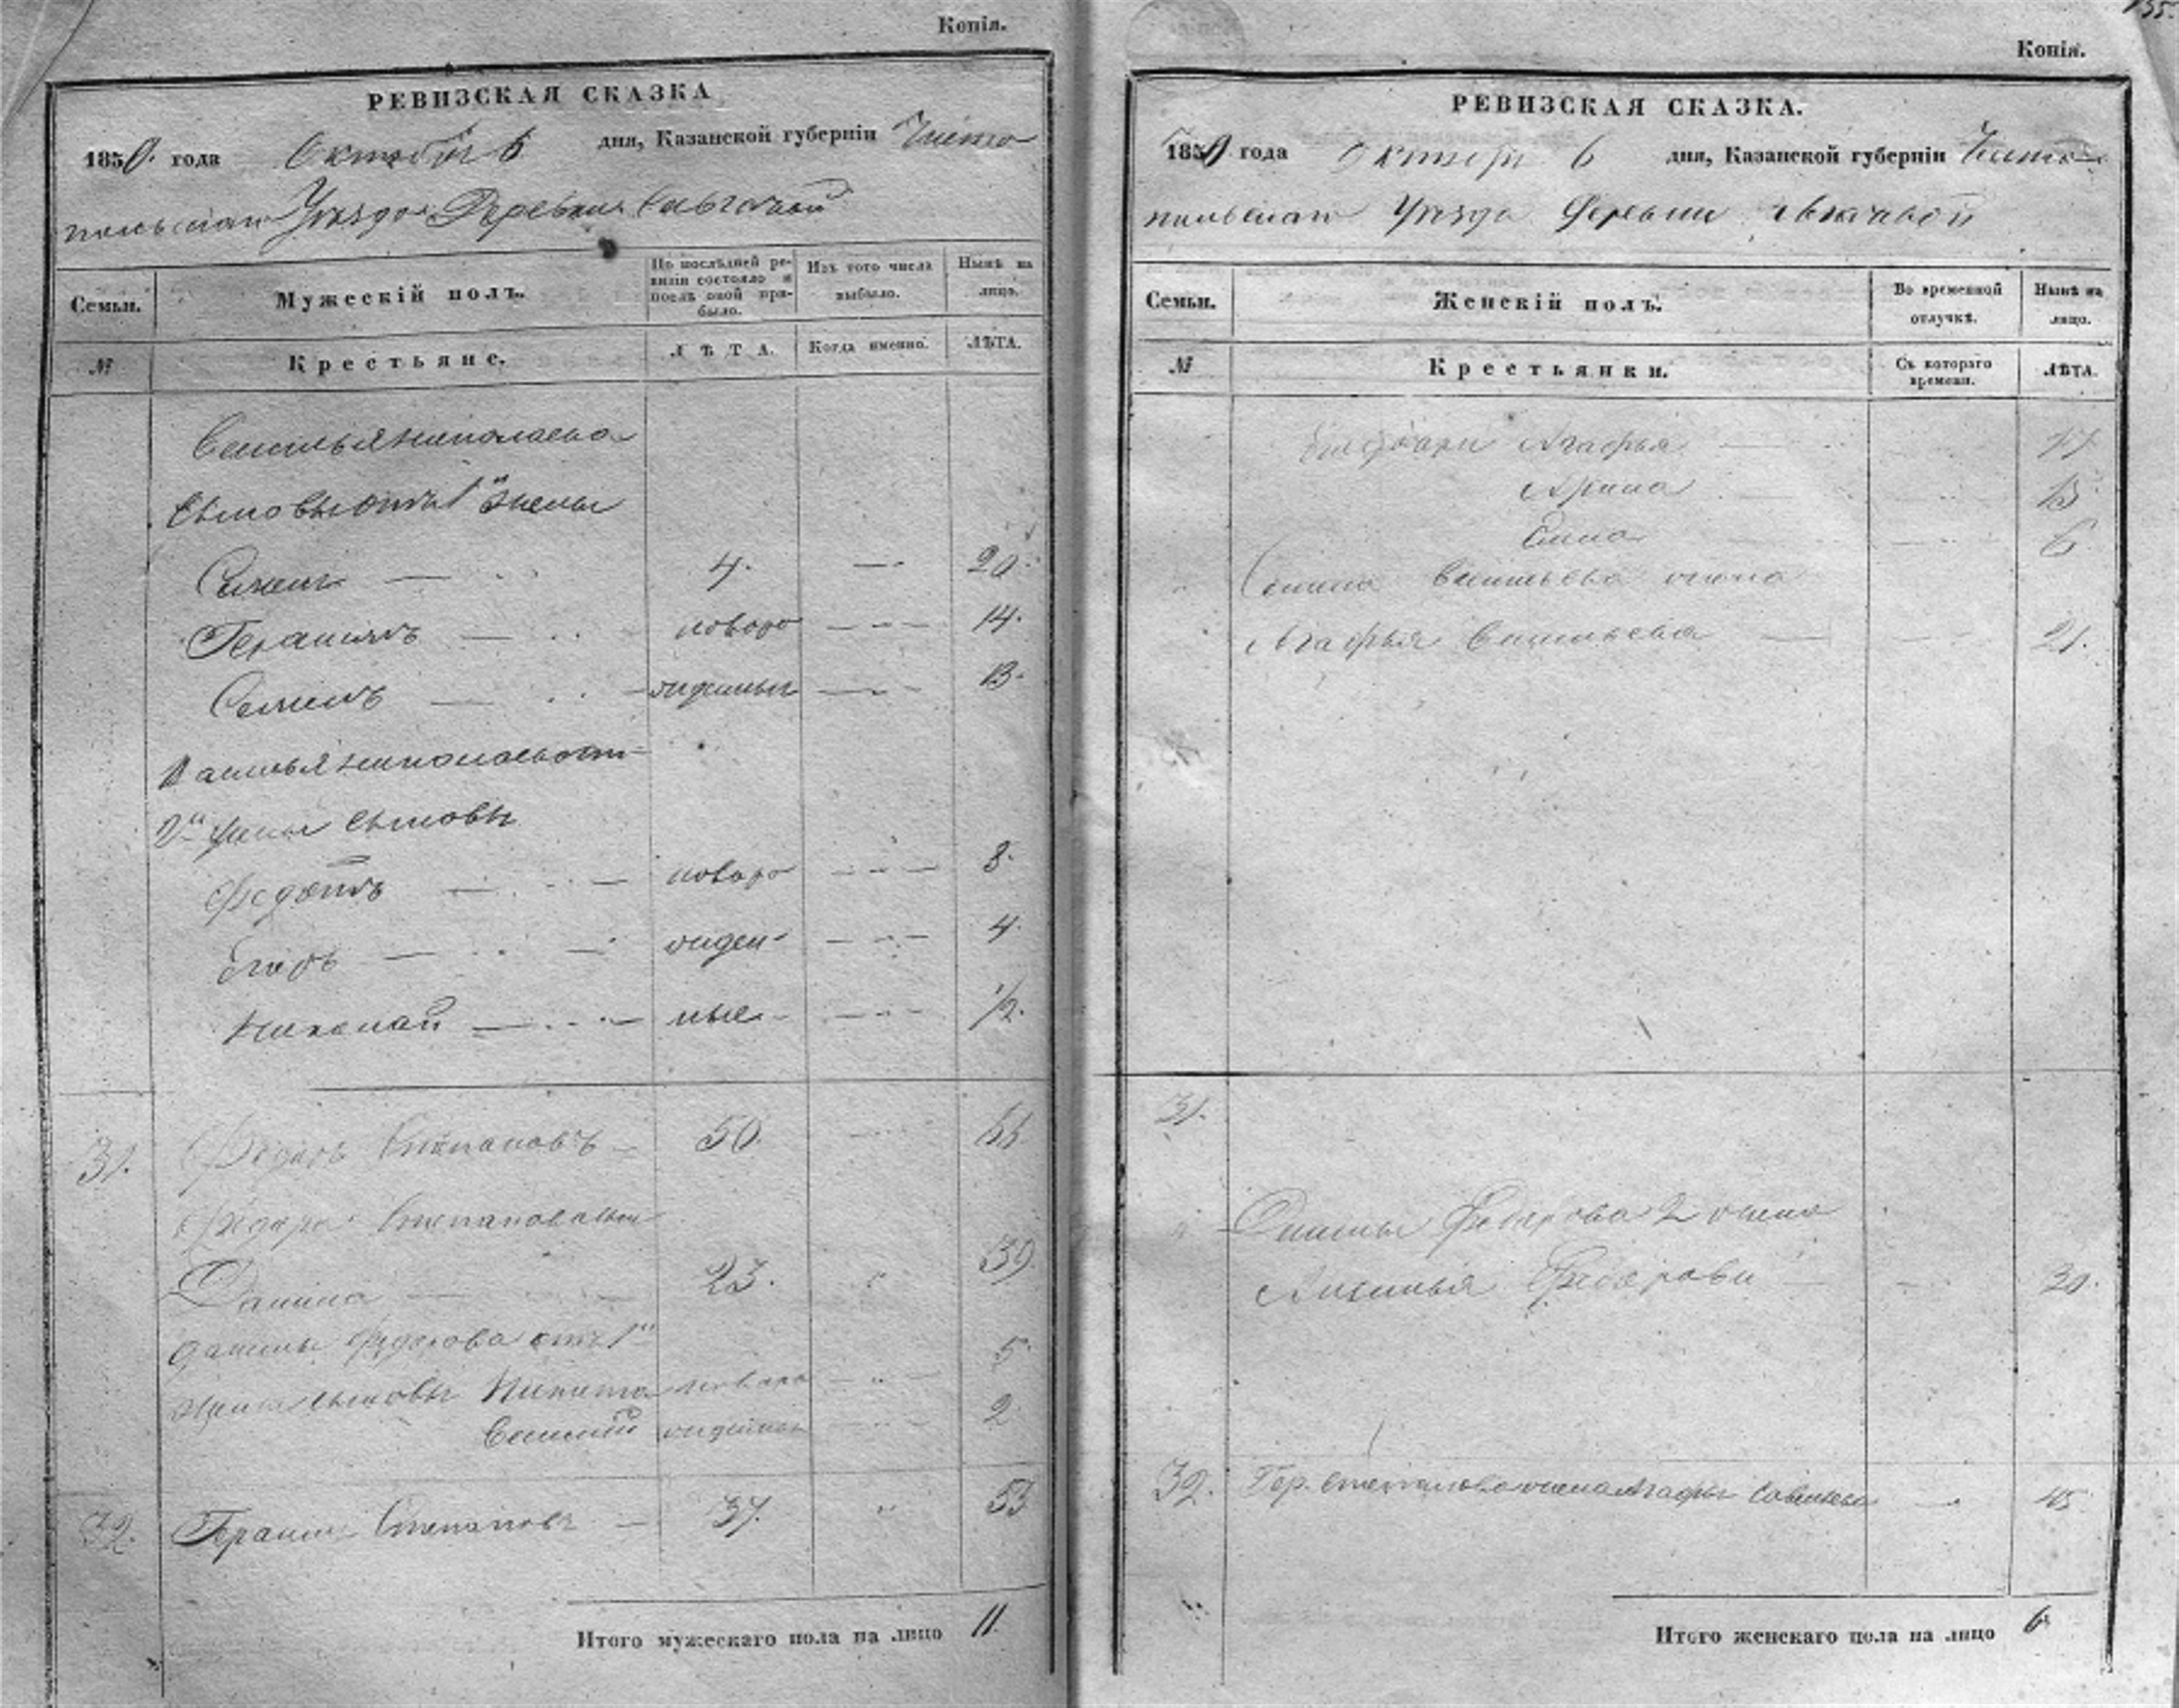 Копія.
РЕВИЗСКАЯ СКАЗКА
1850. года Октября 6 дня, Казанской губерніи Чисто
польскаго Уезда Деревни
Семьи. Мужескій полъ. По послѣдней ревизіи состояло и послѣ оной прибыло. Изъ того числа выбыло. Нынѣ на лицо.
№ Крестьяне. ЛѢТА. Когда именно. ЛѢТА.
Василья Николаева
Сыновья отъ 1й жены
Семенъ 4. 20.
Герасимъ новоро 14.
Семенъ жденные 13.
Василья Николаева от
2й жены сыновья
Федотъ новоро 8.
Егоръ жден 4
Николай ные 1/2.
31. Федоръ Степановъ 50. 66
Федора Степанова сын
Данила 23. 39
Данилы Федорова отъ 1й
жены сыновья Никита новоро 5
Василий жденные 2
32. Герасим Степановъ 37. 53
Итого мужескаго пола на лицо 11.
155.
Копія.
РЕВИЗСКАЯ СКАЗКА.
1850 года Октября 6 дня, Казанской губерніи Чисто
польскаго Уезда Деревни
Семьи. Женскій полъ. Во временной отлучкѣ. Нынѣ на лицо.
№ Крестьянки. Съ котораго времени. ЛѢТА.
дочери Агафья 17
Арина 13
Анна 6
Семена Васильева жена
Агафья Васильева 21.
31.
Данилы Федорова 2 жена
Аксинья Федорова 30.
32. Гер. Степанова жена Агафья Савельева 45
Итого женскаго пола на лицо 6